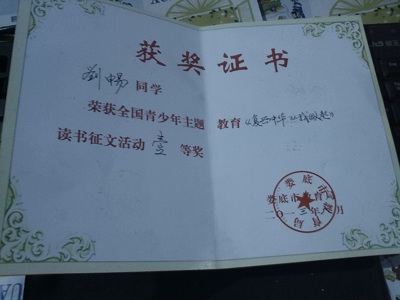 获奖证书
刘畅同学
荣获全国青少年主题 教育《复兴中华 从我做起》
读书征文活动 壹 等奖
娄底市教育局
二〇一三年 月